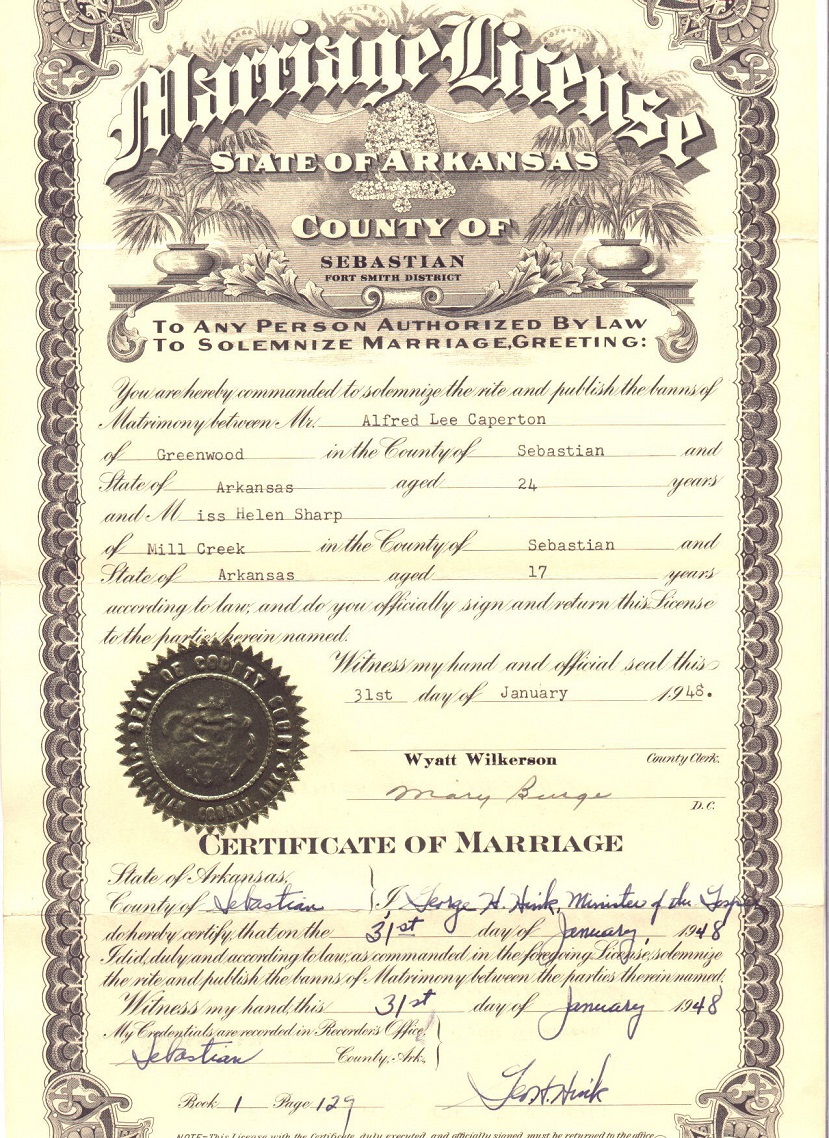 Marriage License
STATE OF ARKANSAS
COUNTY OF
SEBASTIAN
FORT SMITH DISTRICT
TO ANY PERSON AUTHORIZED BY LAW
TO SOLEMNIZE MARRIAGE, GREETING:
You are hereby commanded to solemnize the rite and publish the banns of
Matrimony between Mr. Alfred Lee Caperton
of Greenwood in the County of Sebastian and
State of Arkansas aged 24 years
and M iss Helen Sharp
of Mill Creek in the County of Sebastian and
State of Arkansas aged 17 years
according to law, and do you officially sign and return this License
to the parties herein named.
Witness my hand and official seal this
31st day of January 1948.
SEAL OF COUNTY COURT
SEBASTIAN COUNTY, ARK.
Wyatt Wilkerson County Clerk.
Mary Burge
D.C.
CERTIFICATE OF MARRIAGE
State of Arkansas,
County of Sebastian } I, George H. Hink, Minister of the Gospel
do hereby certify, that on the 31st day of January, 1948
I did, duly and according to law, as commanded in the foregoing License, solemnize
the rite and publish the banns of Matrimony between the parties therein named.
Witness my hand, this 31st day of January 1948
My Credentials are recorded in Recorder's Office,
Sebastian County, Ark. }
Geo. H. Hink
Book 1 Page 129
NOTE=This License with the Certificate, duly executed, and officially signed, must be returned to the office